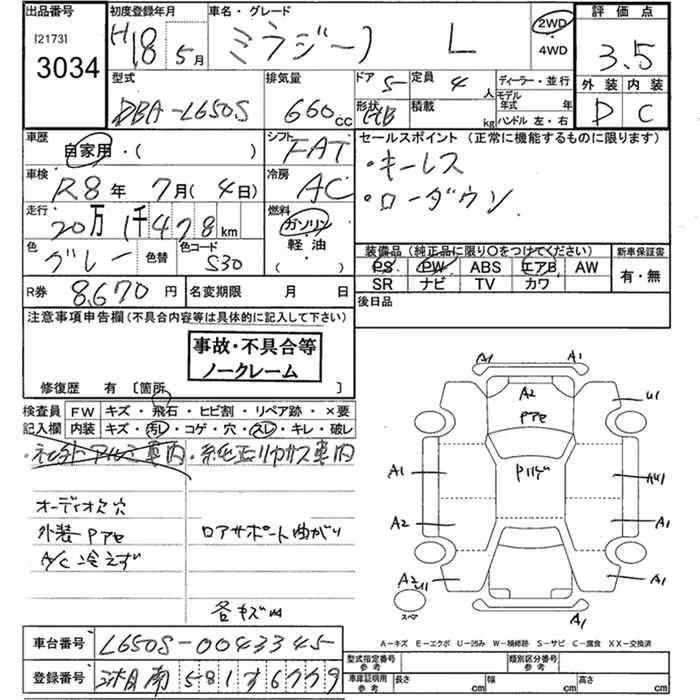 出品番号
[2173]
3034
初度登録年月
H18 5月
車名・グレード
ミラジーノ L
2WD
・
4WD
評価点
3.5
外装 内装
D C
型式
DBA-L650S
排気量
660cc
ドア 5
定員 4人
形状
積載 kg
ディーラー・並行
モデル
年式 年
ハンドル 左・右
車歴
自家用・( )
シフト
FAT
セールスポイント (正常に機能するものに限ります)
・キーレス
・ローダウン
車検
R8年 7月(4日)
冷房
AC
走行
20万1千478km
燃料
ガソリン
・
軽油
( )
色
グレー
色替
色コード
S30
装備品 (純正品に限り○をつけてください)
PS PW ABS エアB AW
SR ナビ TV カワ
新車保証書
有・無
R券 8,670円
名変期限 月 日
後日品
注意事項申告欄 (不具合内容等は具体的に記入して下さい)
事故・不具合等
ノークレーム
修復歴 有 [箇所 ]
検査員 FW キズ・飛石・ヒビ割・リペア跡・×要
記入欄 内装 キズ・汚レ・コゲ・穴・スレ・キレ・破レ
車内・純正リヤガラス車内
オーディオ欠 穴
外装 Pアセ
A/C 冷えず
ロアサポート曲がり
各キズ凹
A1 A1
A2
Pアセ
U1
Pハゲ
A1
A2
A1
A1
A1
スペア
A-キズ E-エクボ U-凹み W-補修跡 S-サビ C-腐食 XX-交換済
車台番号 L650S-0043345
型式指定番号
参考
類別区分番号
参考
登録番号
車庫証明用
参考
長さ cm
幅 cm
高さ cm